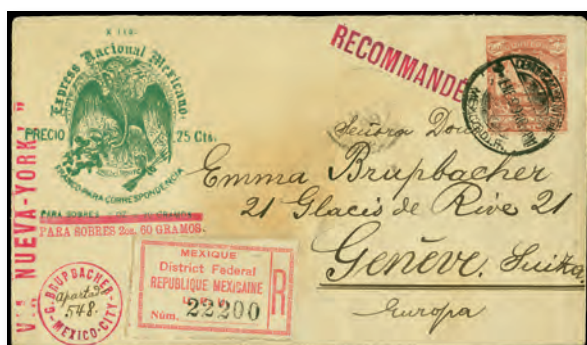 Express Nacional Mexicano.
PRECIO 25 Cts.
FRANCO PARA CORRESPONDENCIA
PARA SOBRES 2oz. 60 GRAMOS.
NUEVA-YORK,"
RECOMMANDÉ
Señora Doña
Emma Brupbacher
21 Glacis de Rive 21
Genève. Suiza
Europa
MEXIQUE
District Federal
REPUBLIQUE MEXICAINE
R
Núm. 22200
G. BRUPBACHER
Apartado
548.
MEXICO-CITY